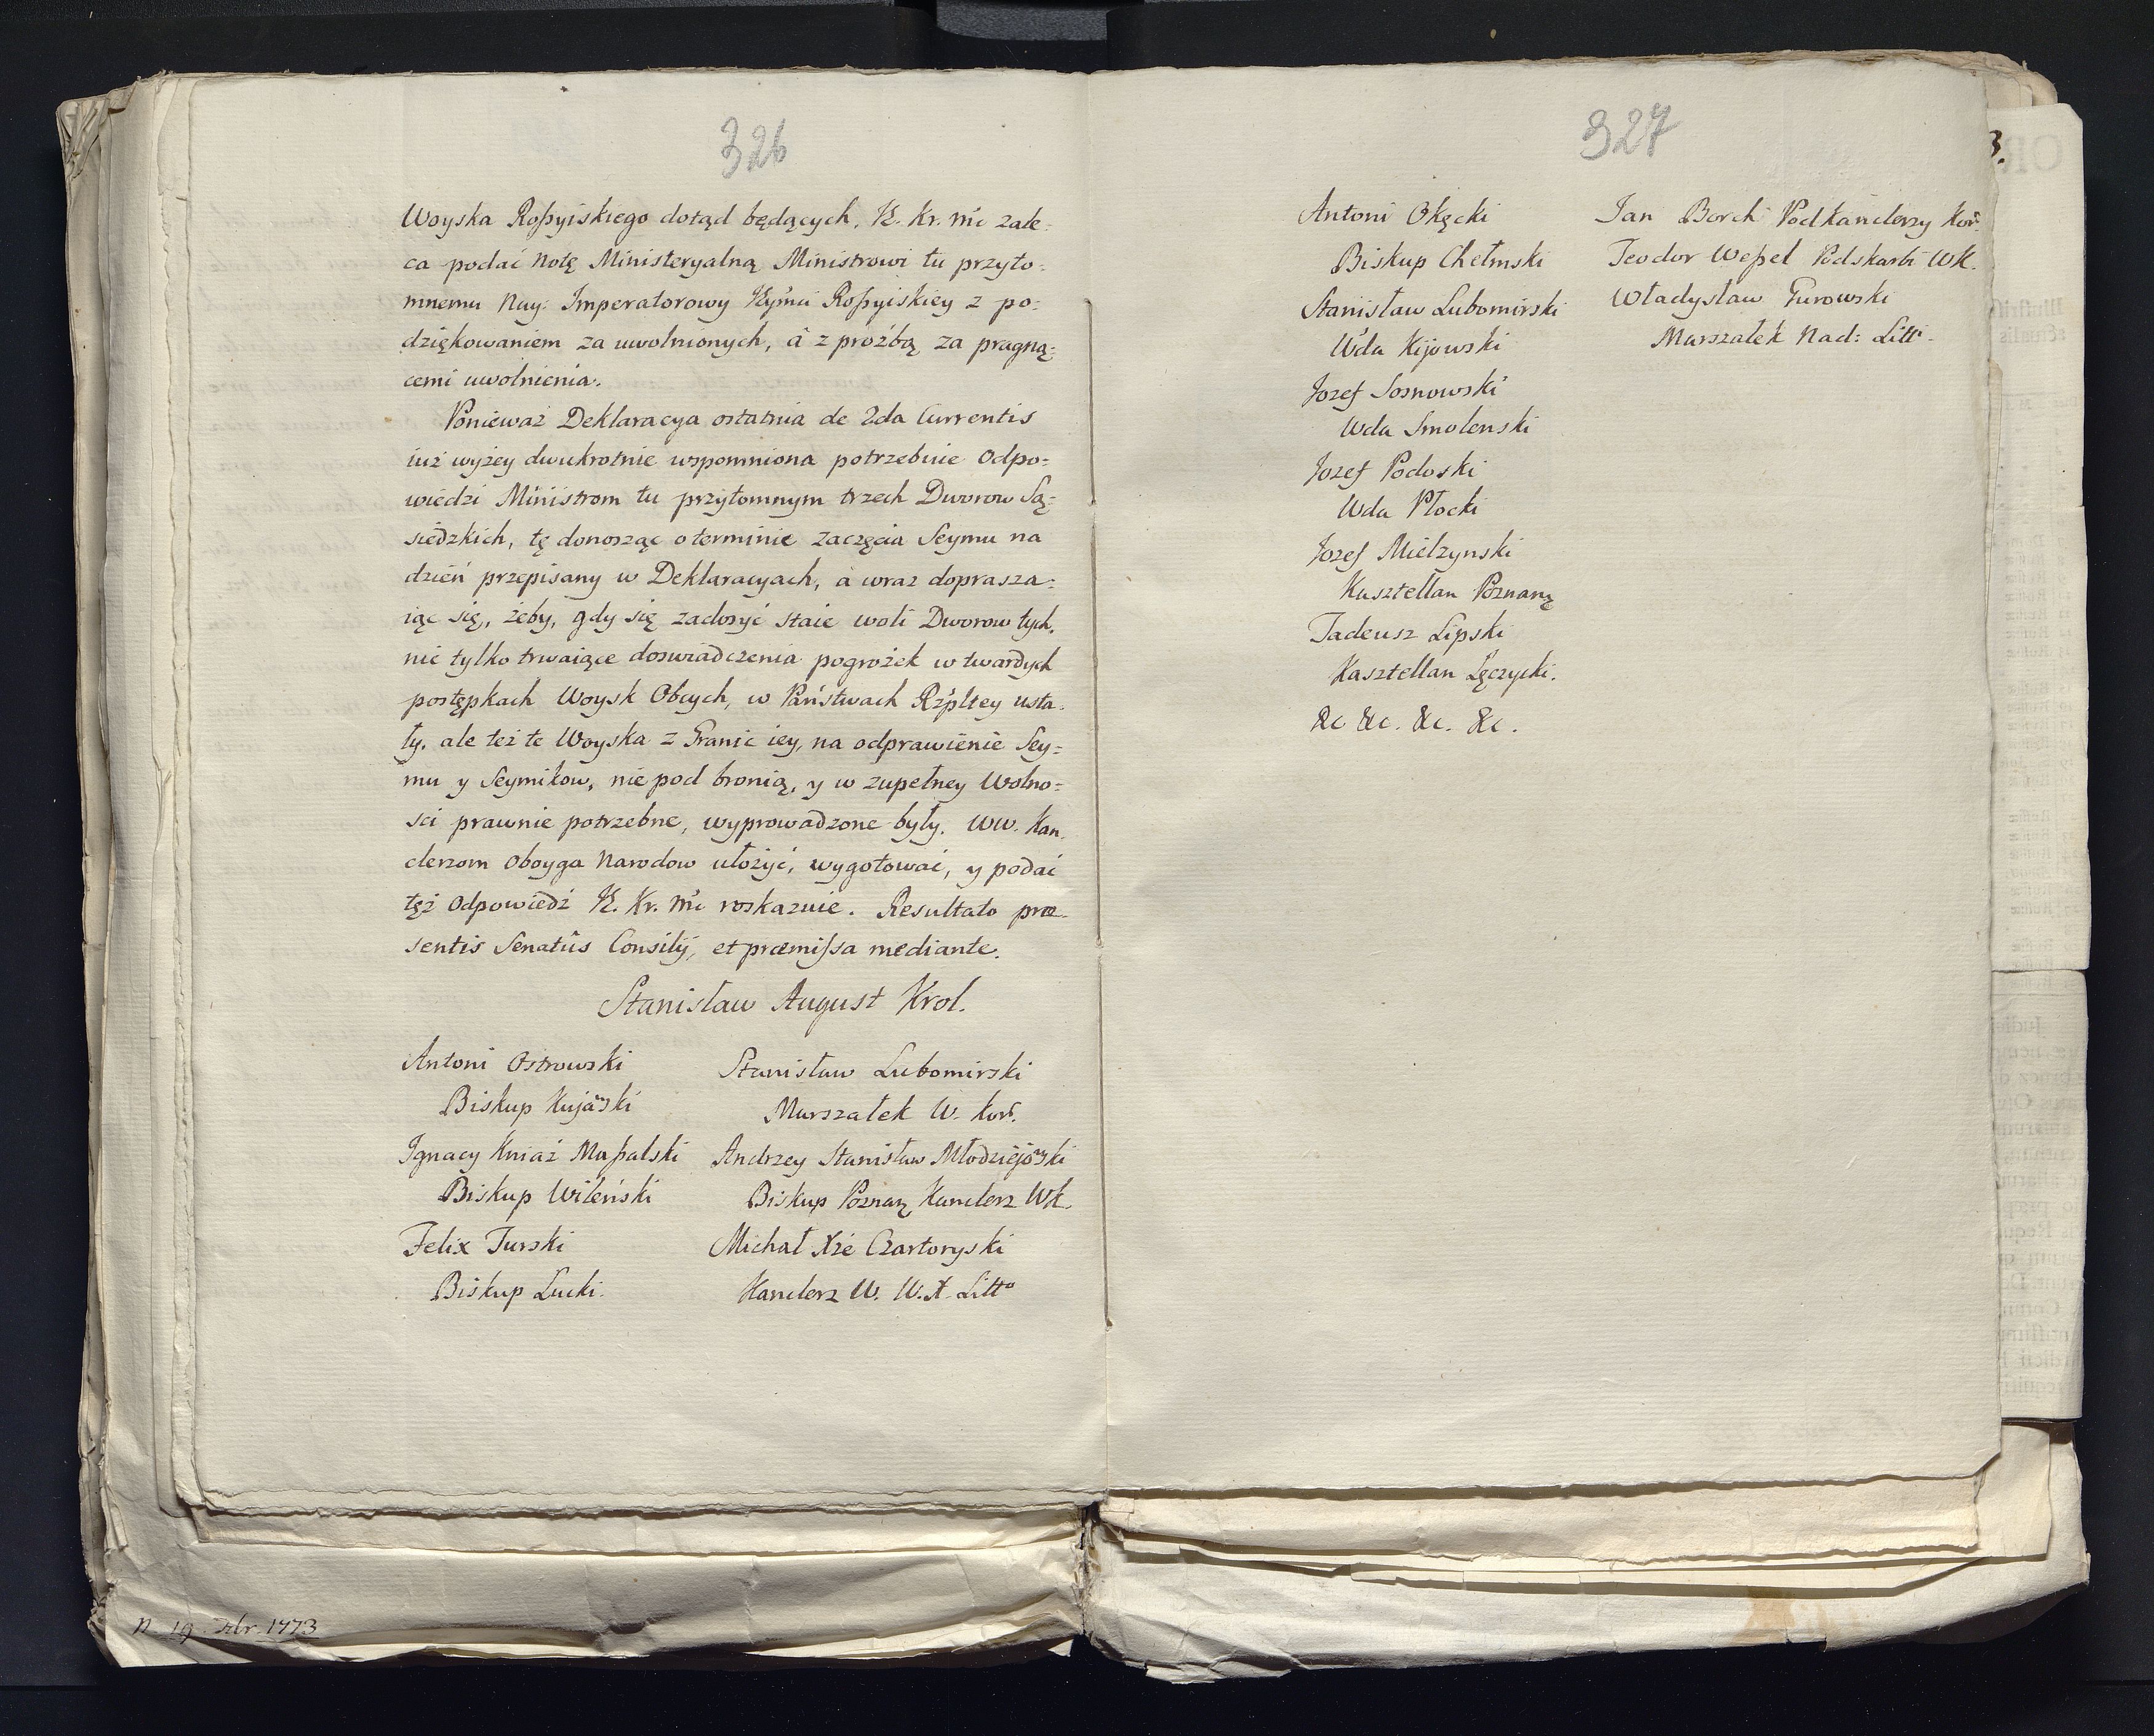 326
Woyska Roßyiskiego dotąd będących. JK. Kr. Mć zale-
ca podać Notę Ministeryalną Ministrowi tu przyto-
mnemu Nay: Imperatorowy JEymći Roßyiskiey z po-
dziękowaniem za uwolnionych, a z proźbą za pragną-
cemi uwolnienia.
Ponieważ Deklaracya ostatnia de 2da Currentis
iuż wyżey dwukrotnie wspomniona potrzebuie Odpo-
wiedzi Ministrom tu przytomnym trzech Dworow Są-
siedzkich, tę donosząc o terminie zaczęcia Seymu na
dzień przepisany w Deklaracyach, a wraz doprasza-
iąc się, żeby, gdy się zadosyć staie woli Dworow tych.
nie tylko trwaiące doswiadczenia pogrożek w twardych
postępkach Woysk Obcych, w Państwach Rzpltey usta-
ły. ale też te Woyska z Granic iey, na odprawienie Sey-
mu y Seymikow, nie pod bronią, y w zupełney Wolno-
sci prawnie potrzebne, wyprowadzone były. WW. Kan-
clerzom Oboyga Narodow ułożyć, wygotować, y podać
tęż Odpowiedź JK. Kr. Mć roskazuie. Resultato præ-
sentis Senatûs Consilij, et præmissa mediante.
Stanisław August Krol.
Antoni Ostrowski
Biskup Kujawski
Ignacy Kniaź Maßalski
Biskup Wileński
Felix Turski
Biskup Lucki.
Stanisław Lubomirski
Marszałek W. Kor.
Andrzey Stanisław Młodziejowski
Biskup Poznań Kanclerz WK.
Michał Xże Czartoryski
Kanclerz W. W. X. Litto
327
Antoni Okęcki
Biskup Chełmski
Stanisław Lubomirski
Wda Kijowski
Jozef Sosnowski
Wda Smolenski
Jozef Podoski
Wda Płocki
Jozef Mielzynski
Kasztellan Poznań
Tadeusz Lipski
Kasztellan Lęczycki.
&c &c. &c. &c.
Jan Borch Podkanclerzy Kor.
Teodor Weßel Podskarbi WK.
Władysław Gurowski
Marszałek Nad: Litt.
3.
1773